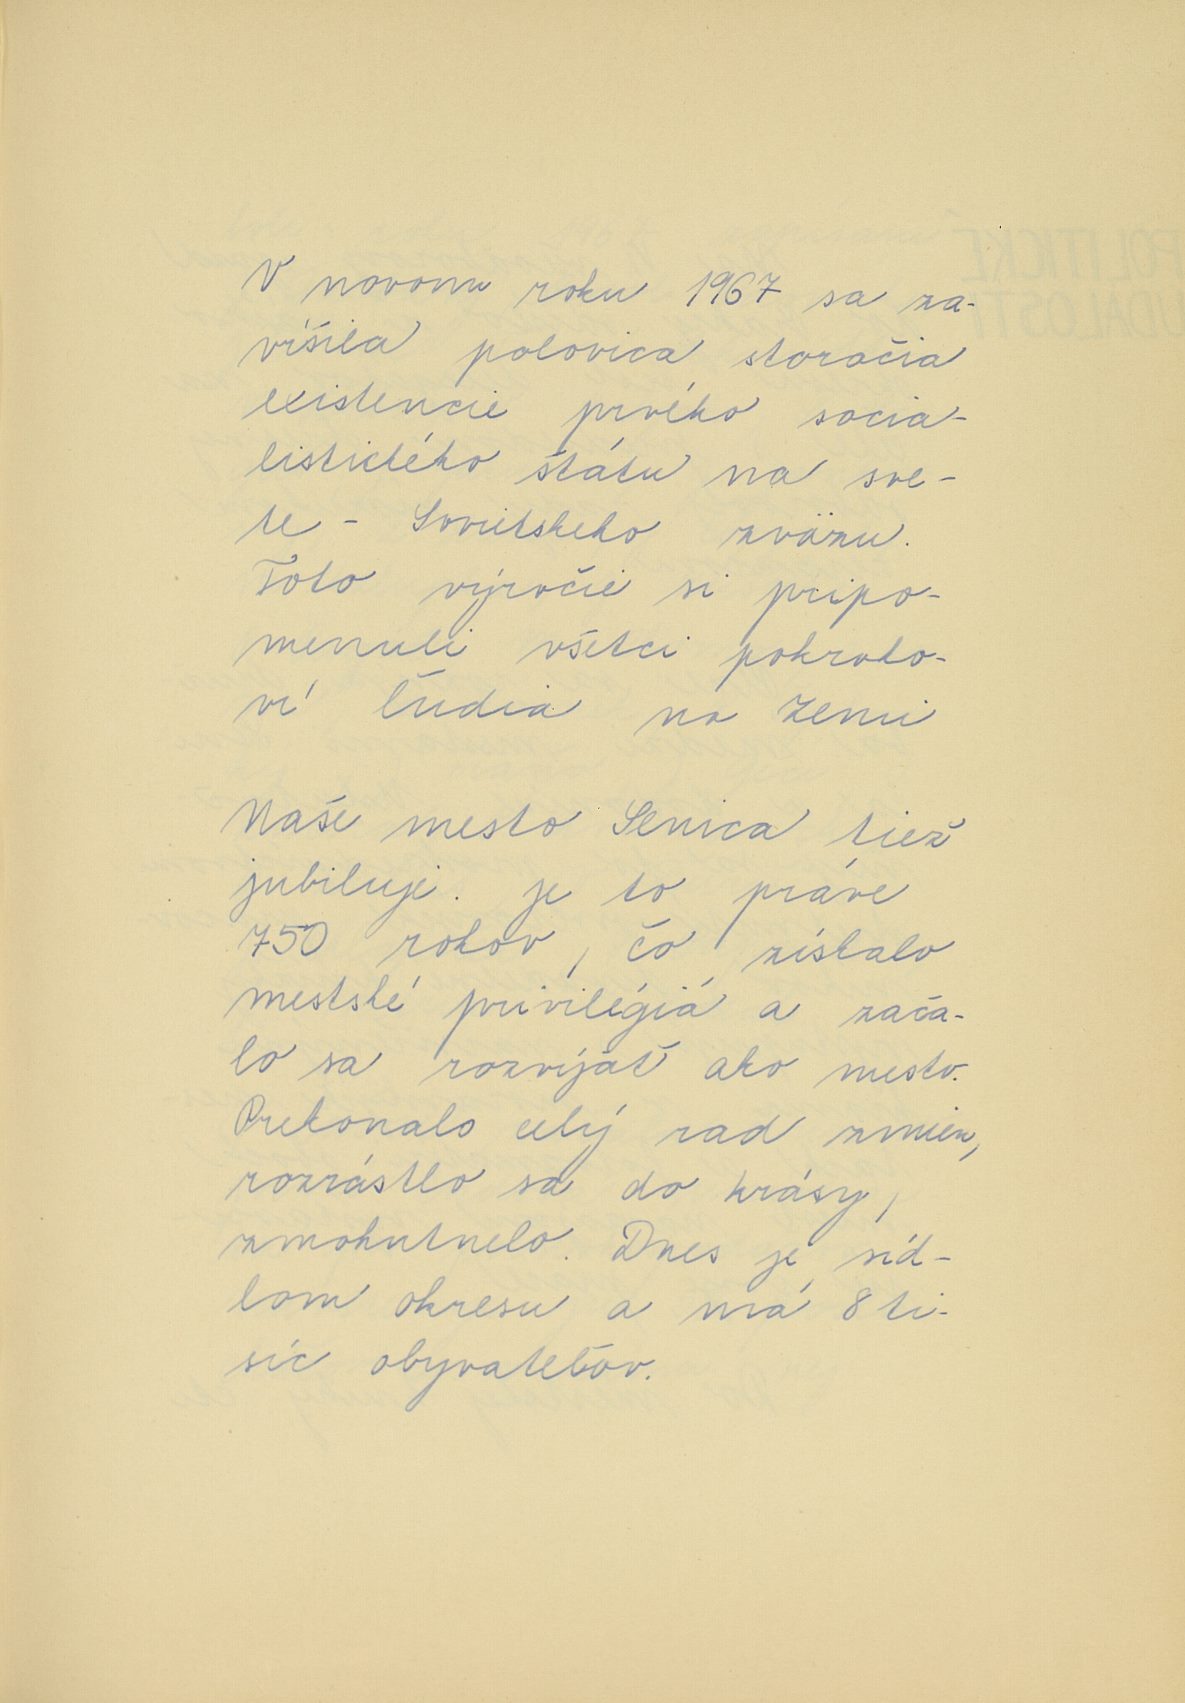 V novom roku 1967 sa za-
vŕšila polovica storočia
existencie prvého socia-
listického štátu na sve-
te - Sovietskeho zväzu.
Toto výročie si pripo-
menuli všetci pokroko-
ví ľudia na Zemi
Naše mesto Senica tiež
jubiluje. je to práve
750 rokov, čo získalo
mestské privilégiá a zača-
lo sa rozvíjať ako mesto.
Prekonalo celý rad zmien,
rozrástlo sa do krásy,
zmohutnelo. Dnes je síd-
lom okresu a má 8 ti-
síc obyvateľov.